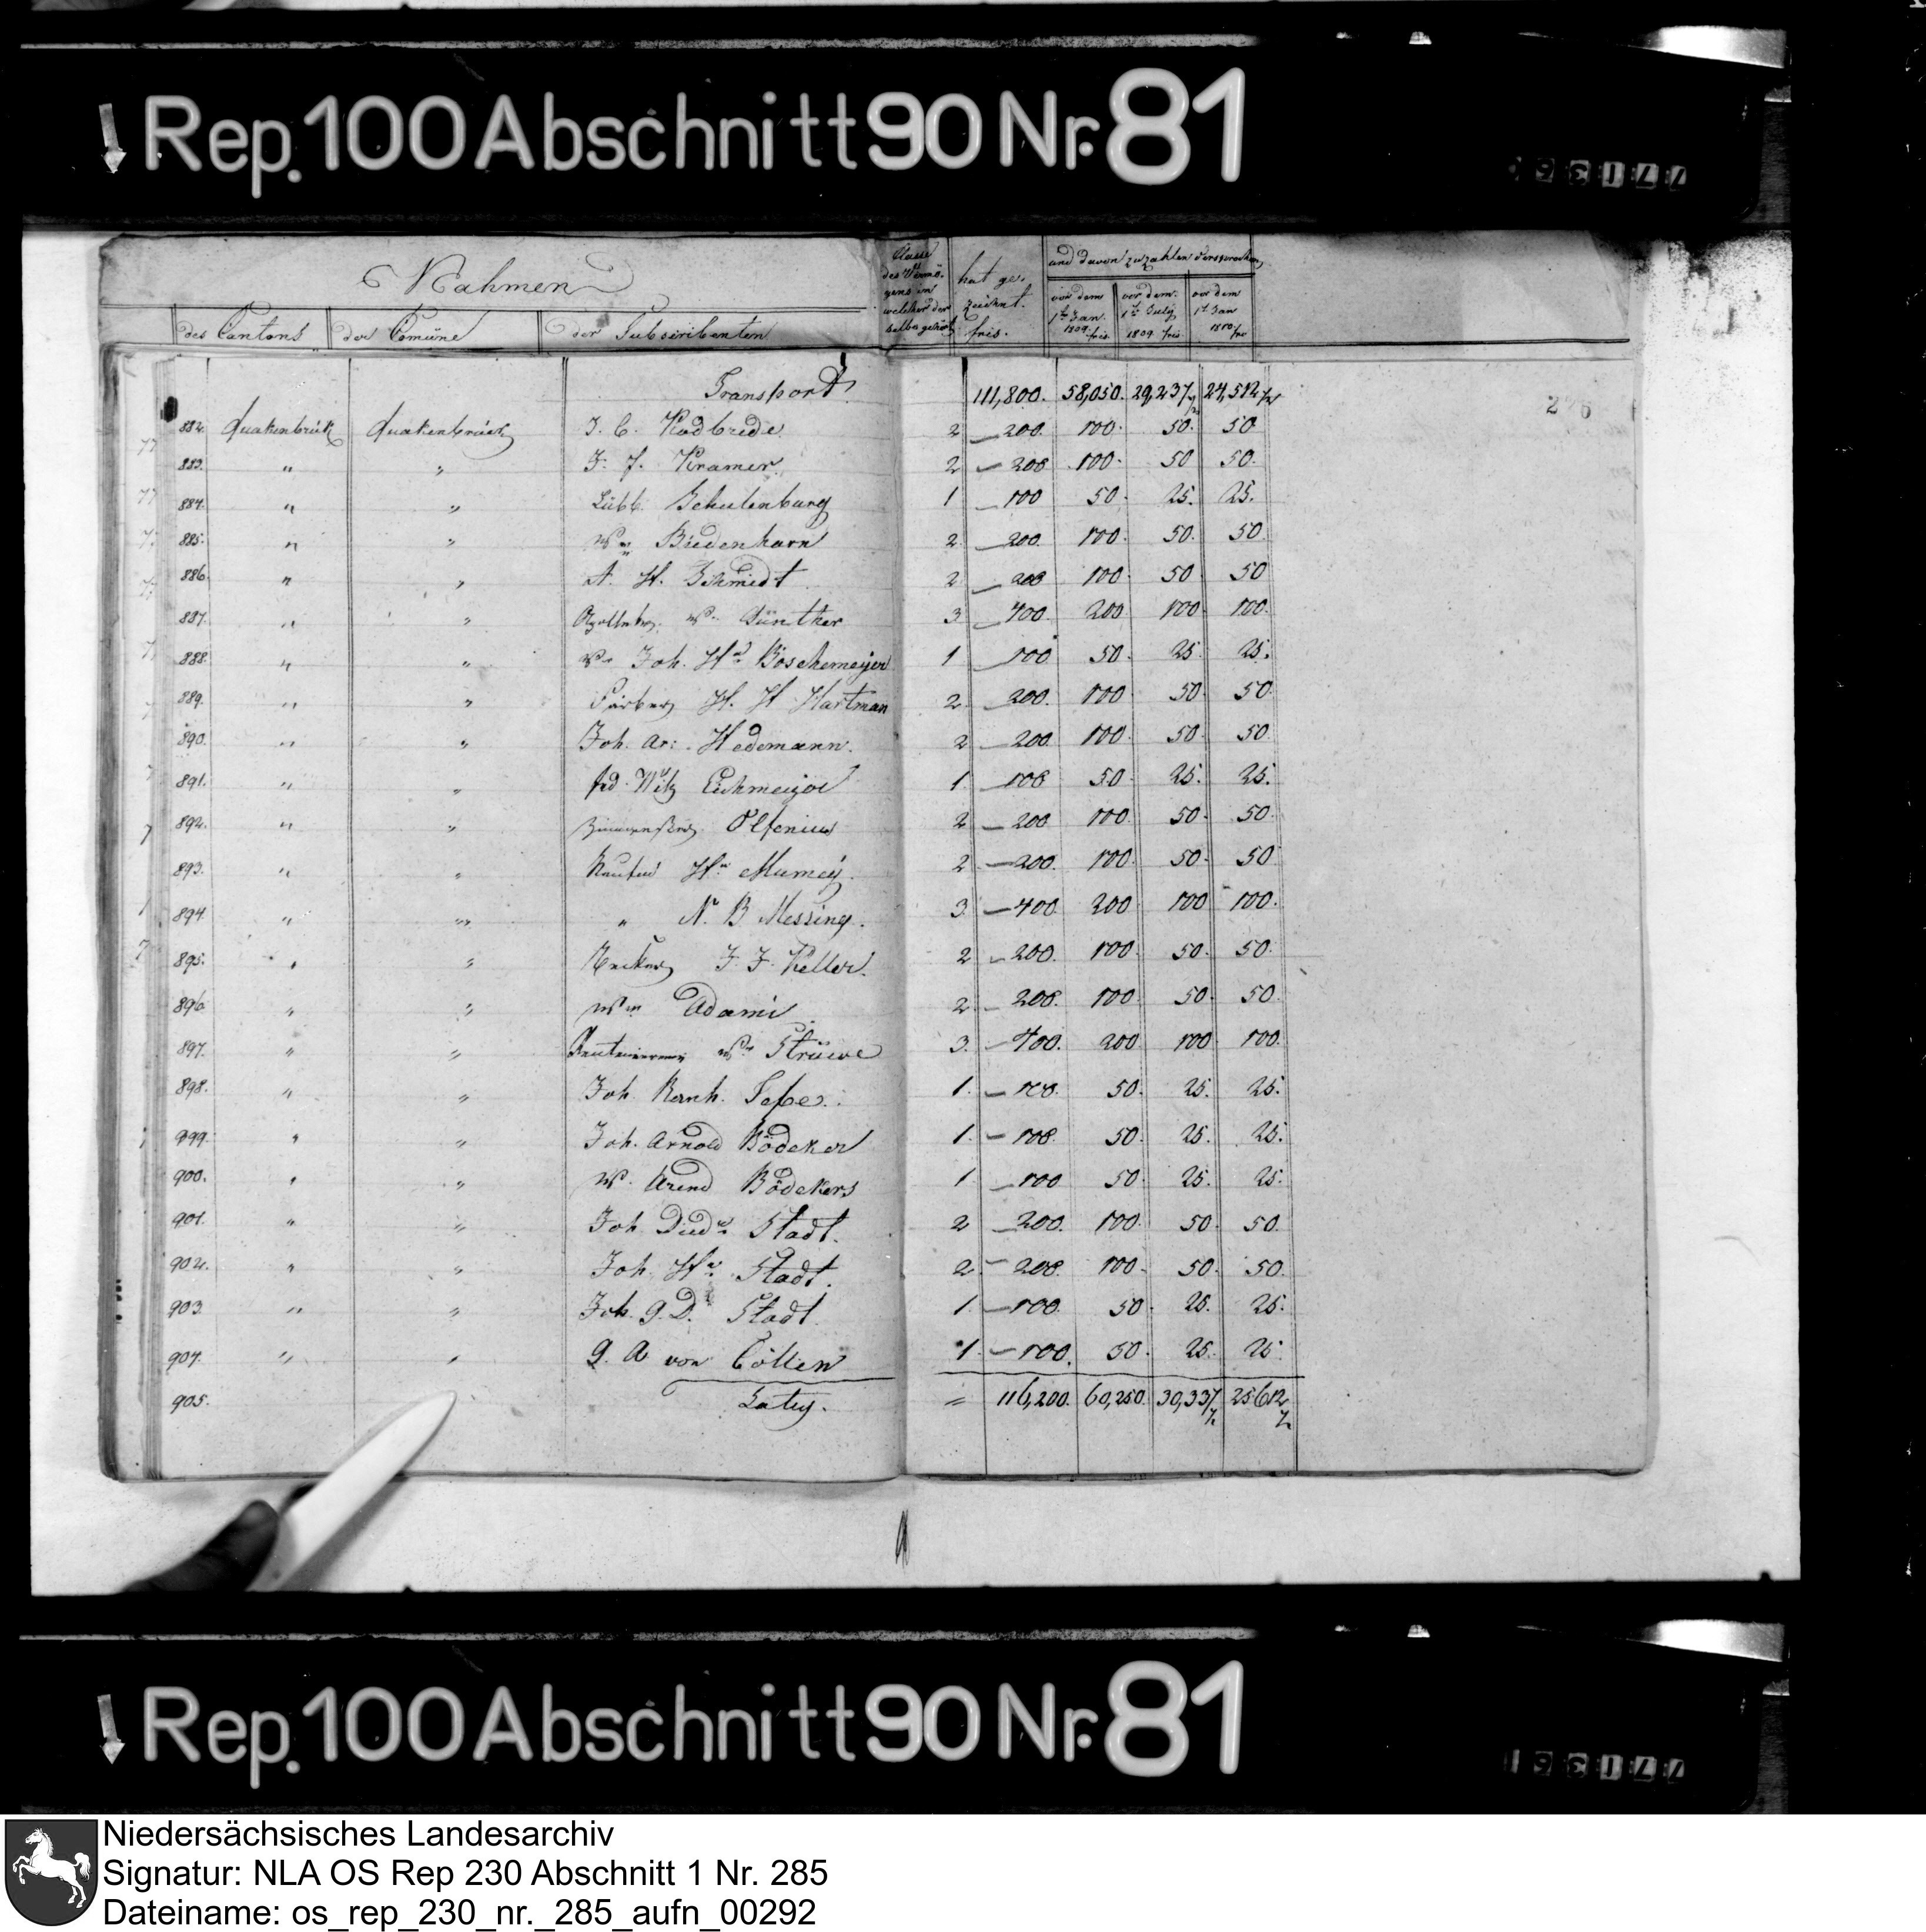 Rep. 100 Abschnitt 90 Nr. 81
Nahmen
des Cantons der Comüne der Subscribenten
Classe des Vermögens in welcher derselbe gehört
hat gezeichnet. frcs.
und davon zu zahlen versprochen
vor dem 1ten Jan. 1809. frcs. vor dem 1ten July 1809 frcs vor dem 1t Jan 1810 frcs
Transport 111,800. 58,050. 29,237 1/2 24,512 1/2
276
882. Quakenbrük Quakenbrück J. C. Kodbrede 2 200. 100. 50. 50
883. " " J. F. Kramer. 2 200 100. 50 50.
884. " " Lübb. Schulenburg 1 100 50. 25. 25.
885. " " Ww Bredenharn 2. 200. 100. 50. 50.
886. " " A. H. Schmidt 2 200 100. 50. 50
887. " " Ww Günther 3 400. 200. 100. 100.
888. " " Ww Joh. Hn Böschemeyer 1 100. 50. 25. 25.
889. " " Färber H. H Hartman 2 200. 100. 50. 50.
890. " " Joh. Ar: Hedemann. 2 200. 100. 50. 50.
891. " " frd. Eichmeyer 1. 100 50. 25. 25.
892. " " Olfenius 2 200 100. 50. 50.
893. " " Kaufm Hn Mumey. 2 200. 100. 50. 50
894. " " " N. B Messing. 3. 400. 200 100 100.
895. " " J. J. Keller. 2 200. 100. 50. 50.
896. " " Ww Adami 2 200. 100. 50. 50.
897. " " Ww Strüwe 3. 400. 200 100 100.
898. " " Joh. Bernh. 1. 100. 50. 25. 25.
899. " " Joh. Arnold Bödeker 1. 100. 50. 25. 25.
900. " " W. Arend Bödekers 1 100 50. 25. 25.
901. " " Joh Died. Stadt. 2 200. 100. 50. 50.
902. " " Joh. Hn Stadt. 2. 200. 100. 50. 50.
903. " " Joh. G. D. Stadt. 1. 100. 50. 25. 25.
904. " " G. A von Cöllen 1. 100. 50. 25. 25.
905. Latus. = 116,200. 60,250. 30,337 1/2 25612 1/2
Rep. 100 Abschnitt 90 Nr. 81
Niedersächsisches Landesarchiv
Signatur: NLA OS Rep 230 Abschnitt 1 Nr. 285
Dateiname: os_rep_230_nr._285_aufn_00292